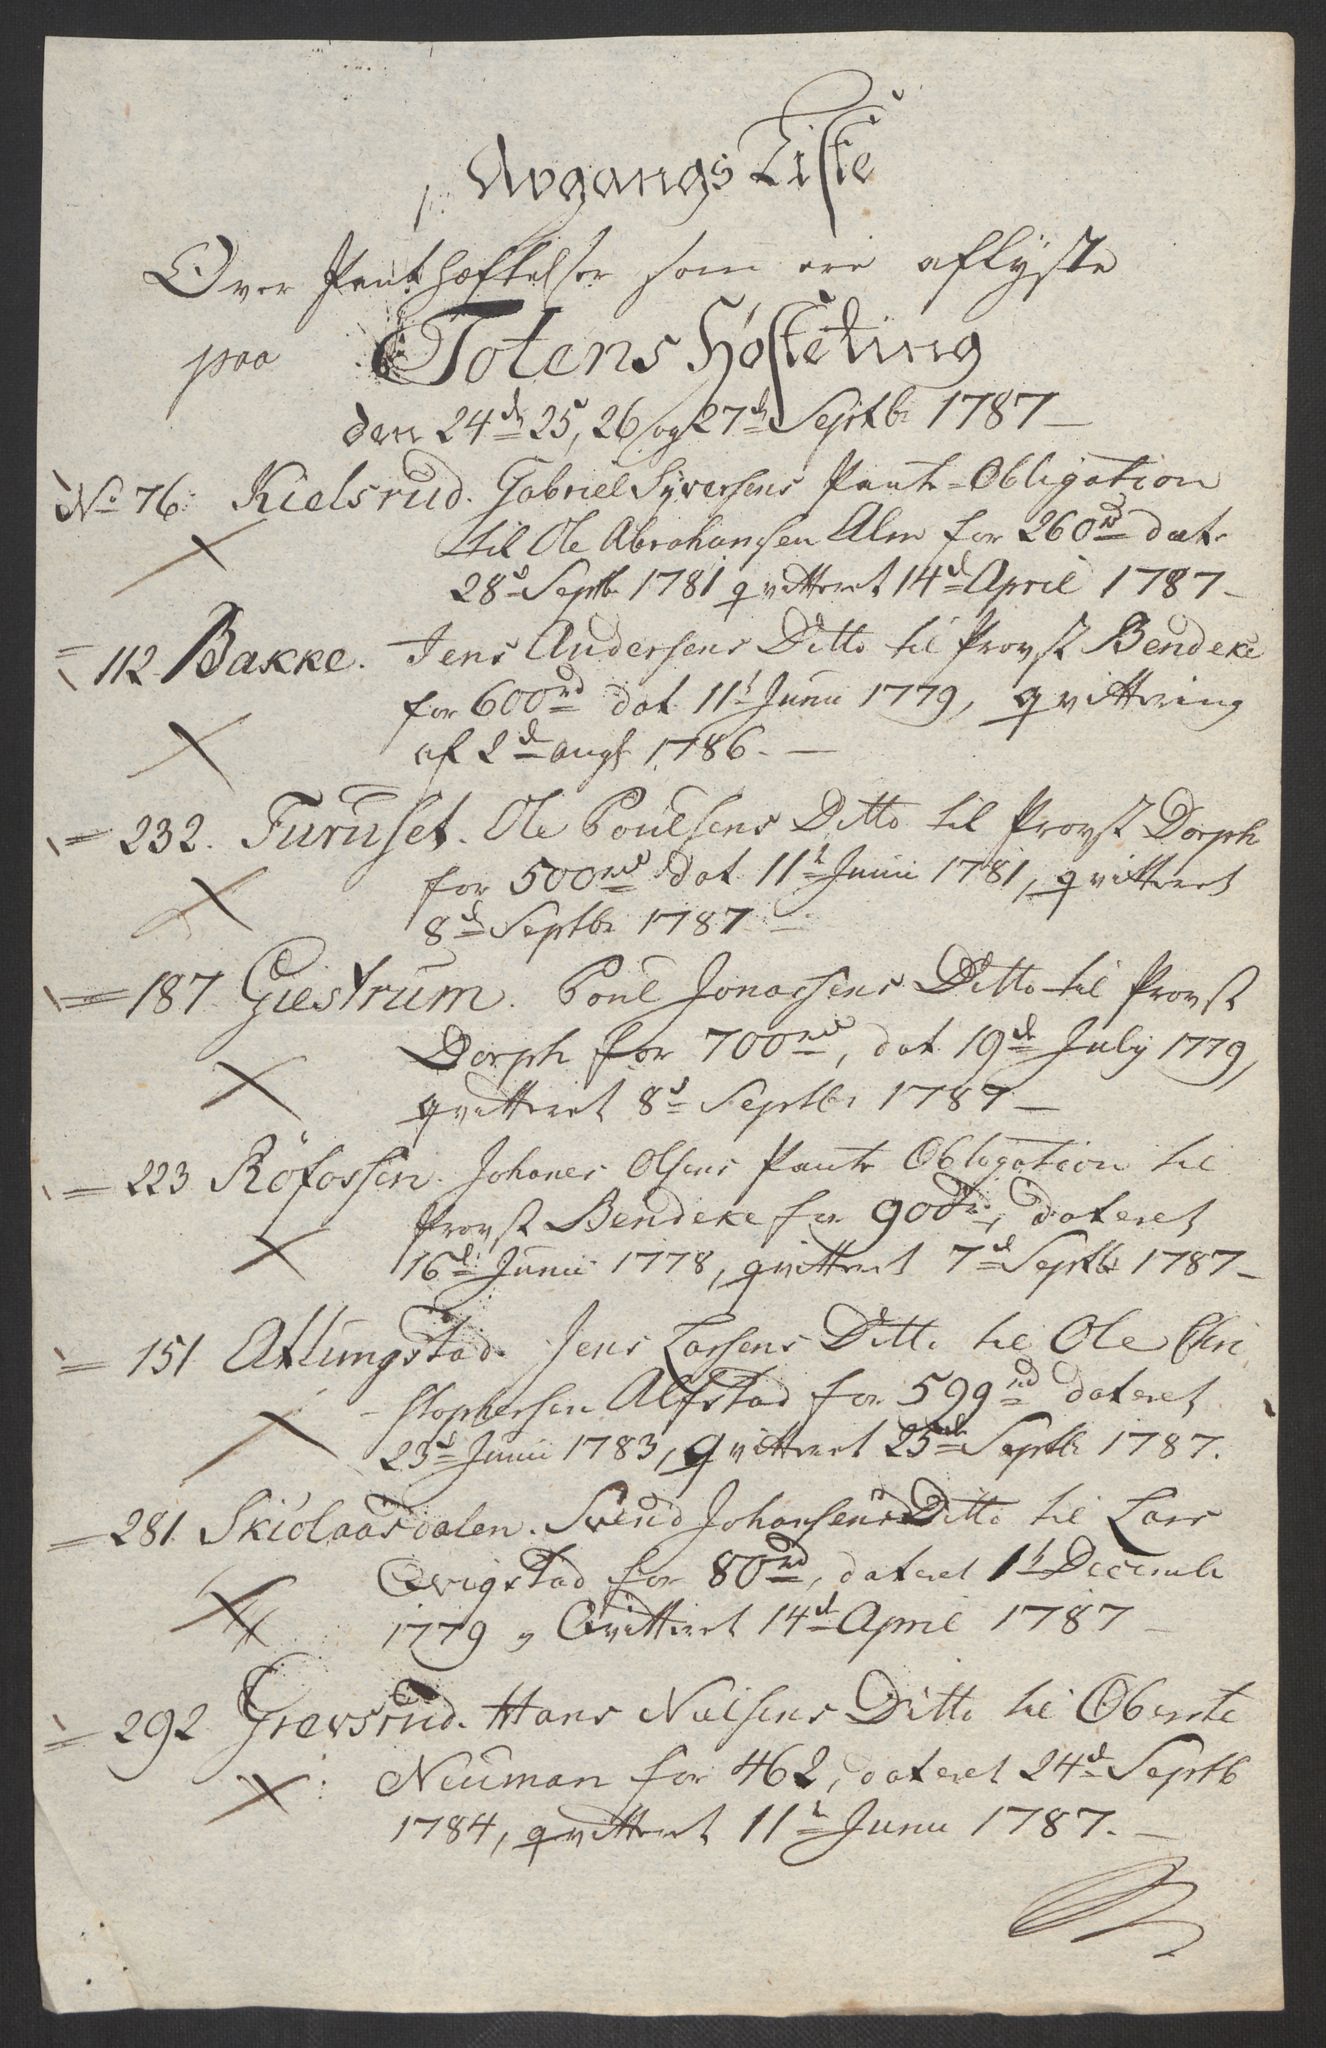 Avgangs Liste
Over Panthæftelser som ere aflyste
paa Totens Høsteting
den 24de 25, 26 og 27de Septbr 1787 —
No 76: Kielsrud. Gabriel Syversens Pante-Obligation
til Ole Abrahamsen Alm for 260rd dat.
28d Septbr 1781 qvitteret 14d April 1787 —
= 112 Bakke. Jens Andersens Ditto til Provst Bendeke
for 600rd dat 11t Junii 1779, qvittering
af 2d augt 1786. —
= 232. Furuset. Ole Poulsens Ditto til Provst Dorph
for 500rd dat 11t Junii 1781, qvitteret
8d Septbr 1787 —
= 187 Giestrum. Poul Jonassens Ditto til Provst
Dorph for 700rd, dat 19de July 1779,
qvitteret 8d Septbr 1787 —
= 223 Röfossen. Johanes Olsens Pante Obligation til
Provst Bendeke for 90rd, dateret
16d Junii 1778, qvitteret 7d Septbr 1787 —
= 151 Attlungstad. Jens Larsens Ditto til Ole Chri
stophersen Alfstad for 599rd dateret
23d Junii 1783, qvitteret 25de Septbr 1787.
= 281 Skiölaasdalen. Svend Johansens Ditto til Lars
Qvigstad for 80rd, dateret 1t Decembr
1779, Qvitteret 14d April 1787 —
= 292 Grevsrud. Hans Nielsens Ditto til Oberste
Neuman for 462, dateret 24d Septb
1784, qvitteret 11t Junii 1787. —